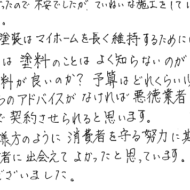 ったので不安でしたが、ていねいな施工をしてい
塗装はマイホームを長く維持するために
は塗料のことはよく知らないのが
料が良いのか？予算はどれくらい
つのアドバイスがなければ悪徳業者
で契約させられると思います。
様方のように消費者を守る努力に
者に出会えてよかったと思っています。
ございました。